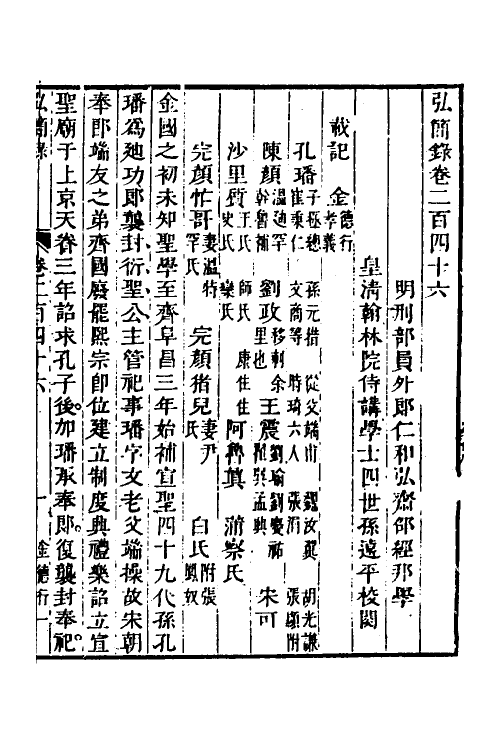 弘簡錄卷二百四十六
明刑部員外郎仁和弘齋邵經邦學
皇清翰林院侍講學士四世孫遠平校閱
載記 金德行 孝義
孔璠子拯總 孫元措 從父端甫
溫迪罕幹魯補
陳顏 劉政 王震 朱可
沙里質 王氏 師氏 康住住 阿魯真 蒲察氏
史氏 欒氏
完顏忙哥妻溫特罕氏 完顏猪兒妻尹氏 白氏附張鳳奴
金國之初未知聖學至齊阜昌三年始補宣聖四十九代孫孔
璠爲廸功郎襲封衍聖公主管祀事璠字文老父端操故宋朝
奉郎端友之弟齊國廢罷熙宗卽位建立制度典禮樂詔立宣
聖廟于上京天眷三年詔求孔子後加璠承奉郎復襲封奉祀
弘簡錄 卷二百四十六 一 金德行一